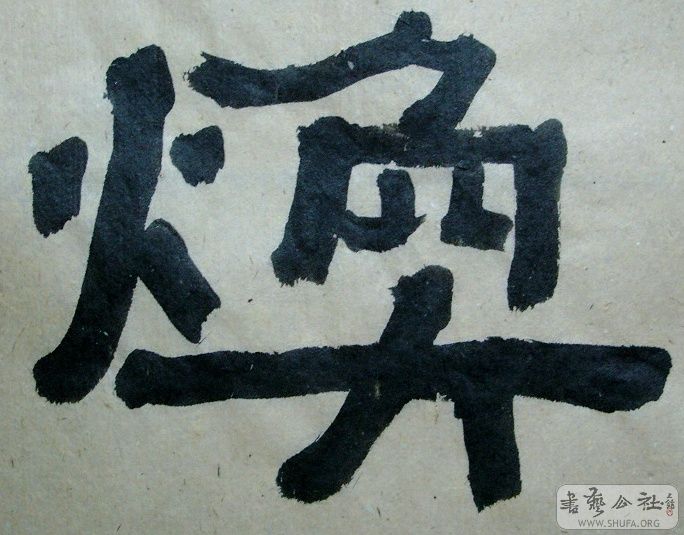 煥
書藝公社
WWW.SHUFA.ORG